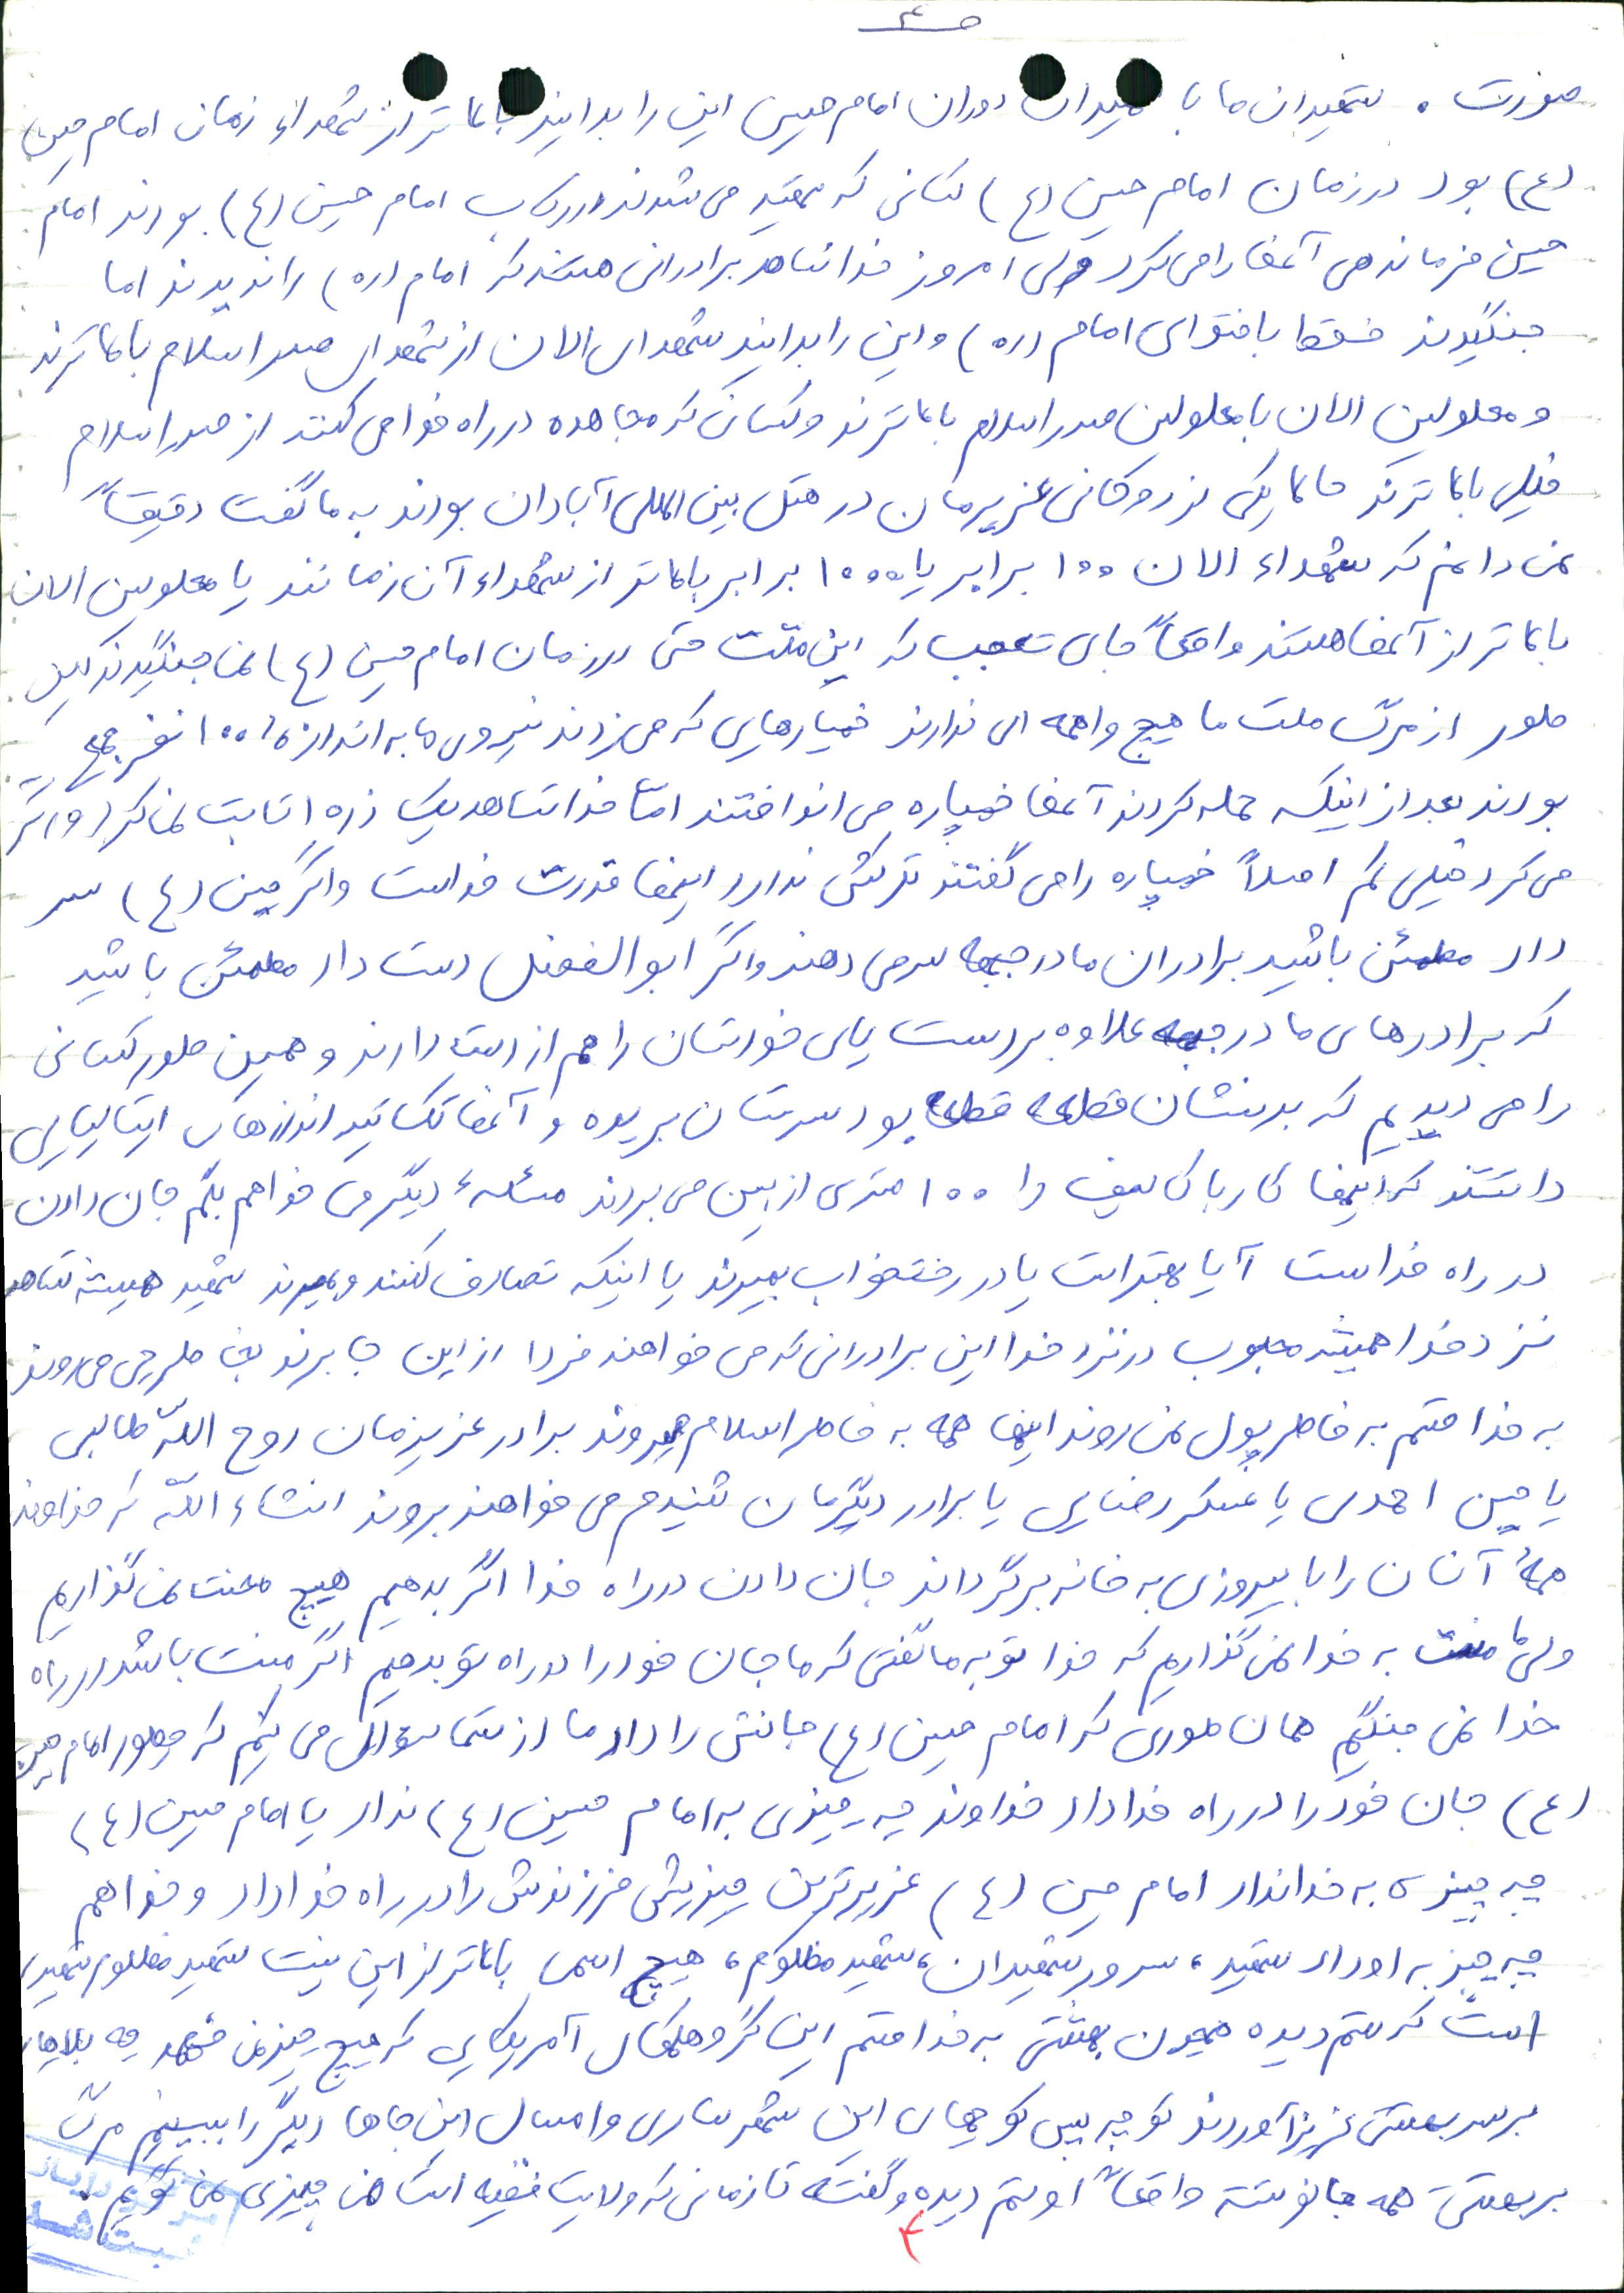 ص۴
صورت . شهیدان ما با شهیدان دوران امام حسین این را بدانید بالاتر از شهداء زمان امام حسین
(ع) بود در زمان امام حسین (ع) کسانی که شهید می شدند در رکاب امام حسین (ع) بودند امام
حسین فرماندهی آنها را می کرد ولی امروز خدا شاهد برادرانی هستند که امام (ره) را ندیدند اما
جنگیدند فقط با فتوای امام (ره) و این را بدانید شهدای الان از شهدای صدر اسلام بالاترند
و معلولین الان با معلولین صدر اسلام بالاترند و کسانی که مجاهده در راه خدا می کنند از صدر اسلام
خیلی بالاترند حالا یکی از روحانی عزیزمان در هتل بین المللی آبادان بودند به ما گفت دقیقاً
نمی دانم که شهداء الان ۱۰۰ برابر یا ۱۰۰۰ برابر بالاتر از شهداء آن زمانند یا معلولین الان
بالاتر از آنها هستند واقعاً جای تعجب که این ملت حتی در زمان امام حسین (ع) نمی جنگیدند این
طور از مرگ ملت ما هیچ واهمه ای ندارند خمپارهایی که می زدند نیروی ما به اندازه ۱۰۰ نفر جمع
بودند بعد از اینکه حمله کردند آنها خمپاره می انداختند اما خدا شاهد یک ذره اثابت نمی کرد و اگر
می کرد خیلی کم اصلاً خمپاره را می گفتند ترکش ندارد اینها قدرت خداست و اگر حسین (ع) سر
داد مطمئن باشید برادران ما در جبهه سر می دهند و اگر ابوالفضل دست داد مطمئن باشید
که برادرهای ما در جبهه علاوه بر دست پای خودشان را هم از دست دارند و همین طور کسانی
را می دیدیم که بدنشان قطعه قطعه بود سرشان بریده و آنها تک تیر اندازهای ایتالیایی
داشتند که اینها کاربا کالیف را ۱۰۰ متری از بین می بردند مسئلهٔ دیگر می خواهم بگم جان دادن
در راه خداست آیا بهتر است یا در رختخواب بمیرند یا اینکه تصادف کنند و بمیرند شهید همیشه شاهد
نزد خدا همیشه محبوب در نزد خدا این برادرانی که می خواهند فردا از این جا برند به خاطر چی می روند
به خدا قسم به خاطر پول نمی روند اینها همه به خاطر اسلام میروند برادر عزیزمان روح اللّه طالبی
یا حسین احمدی یا عسکر رضایی یا برادر دیگرمان شنیدم می خواهند بروند انشاء اللّه که خداوند
همهٔ آنان را با پیروزی به خانه برگرداند جان دادن در راه خدا اگر بدهیم هیچ منت نمی گذاریم
ولی ما منت به خدا نمی گذاریم که خدا تو به ما گفتی که ما جان خود را در راه تو بدهیم اگر منت باشد در راه
خدا نمی جنگیم همان طوری که امام حسین (ع) جانش را داد ما از شما سؤال می کنم که چطور امام حسین
(ع) جان خود را در راه خدا داد خداوند چه چیزی به امام حسین (ع) نداد یا امام حسین (ع)
چه چیزی به خدا نداد امام حسین (ع) عزیزترین چیزش فرزندش را در راه خدا داد و خدا هم
چه چیز به او داد شهید ، سرور شهیدان ، شهید مظلوم ، هیچ اسمی بالاتر از این نیست شهید مظلوم شهیدی
است که ستم دیده همچون بهشتی به خدا قسم این گروهکهای آمریکایی که هیچ چیز نمی فهمد چه بلاها
بر سر بهشتی عزیز آوردند کوچه پس کوچهای این شهر ساری و امسال این جاها دیگر را ببینیم مرگ
بر بهشتی همه جا نوشته واقعاً او ستم دیده و گفته تا زمانی که ولایت فقیه است من چیزی نمی گویم .